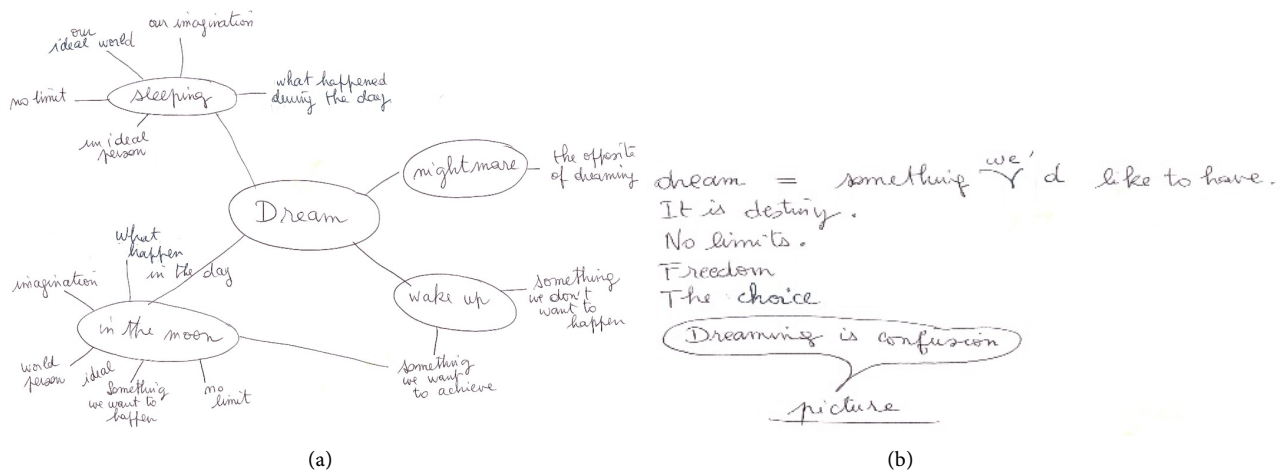 our
ideal world
our imagination
no limit
sleeping
what happened
during the day
un ideal
person
nightmare
the opposite
of dreaming
Dream
what
happen
in the day
imagination
in the moon
wake up
something
we don't
want to
happen
something
we want
to achieve
world
person
ideal
something
we want to
happen
no
limit
(a)
dream = something we'd like to have.
It is destiny.
No limits.
Freedom
The choice
Dreaming is confusion
picture
(b)